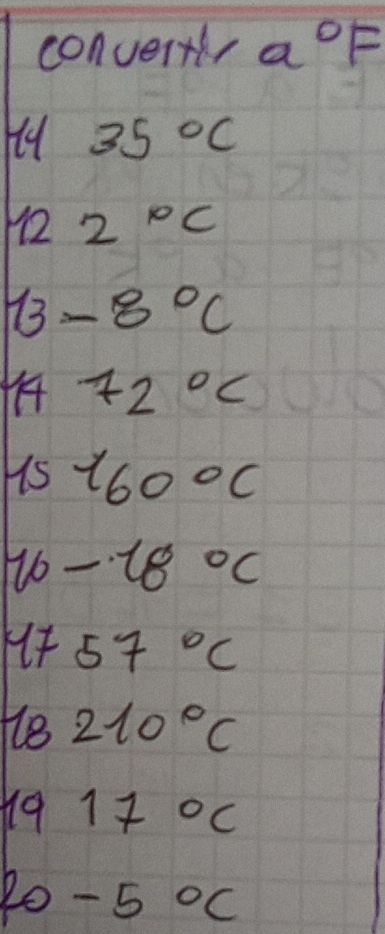 convertir a °F
11 35 °C
12 2 °C
13 - 8 °C
14 72 °C
15 160 °C
16 - 18 °C
17 57 °C
18 210 °C
19 17 °C
20 - 5 °C